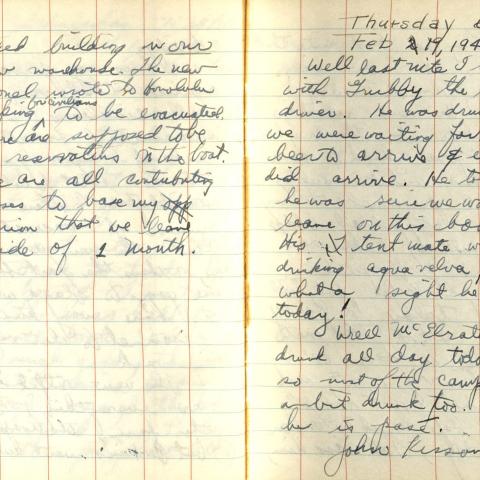 building in our
warehouse. The new
wrote to Honolulu
for civilians
to be evacuated.
are supposed to be
reservations on the boat.
are all contributing
to base my opp
that we leave
of 1 month.
Thursday
Feb 19, 194
Well last nite I
with Grubby the
driver. He was dru
we were waiting for
beer to arrive &
did arrive. He to
he was sure we wo
leave on this boa
His tent mate w
drinking aqua velva,
what a sight he
today!
Well McElrat
drunk all day toda
so most of the camp
a bit drunk too.
he is
John